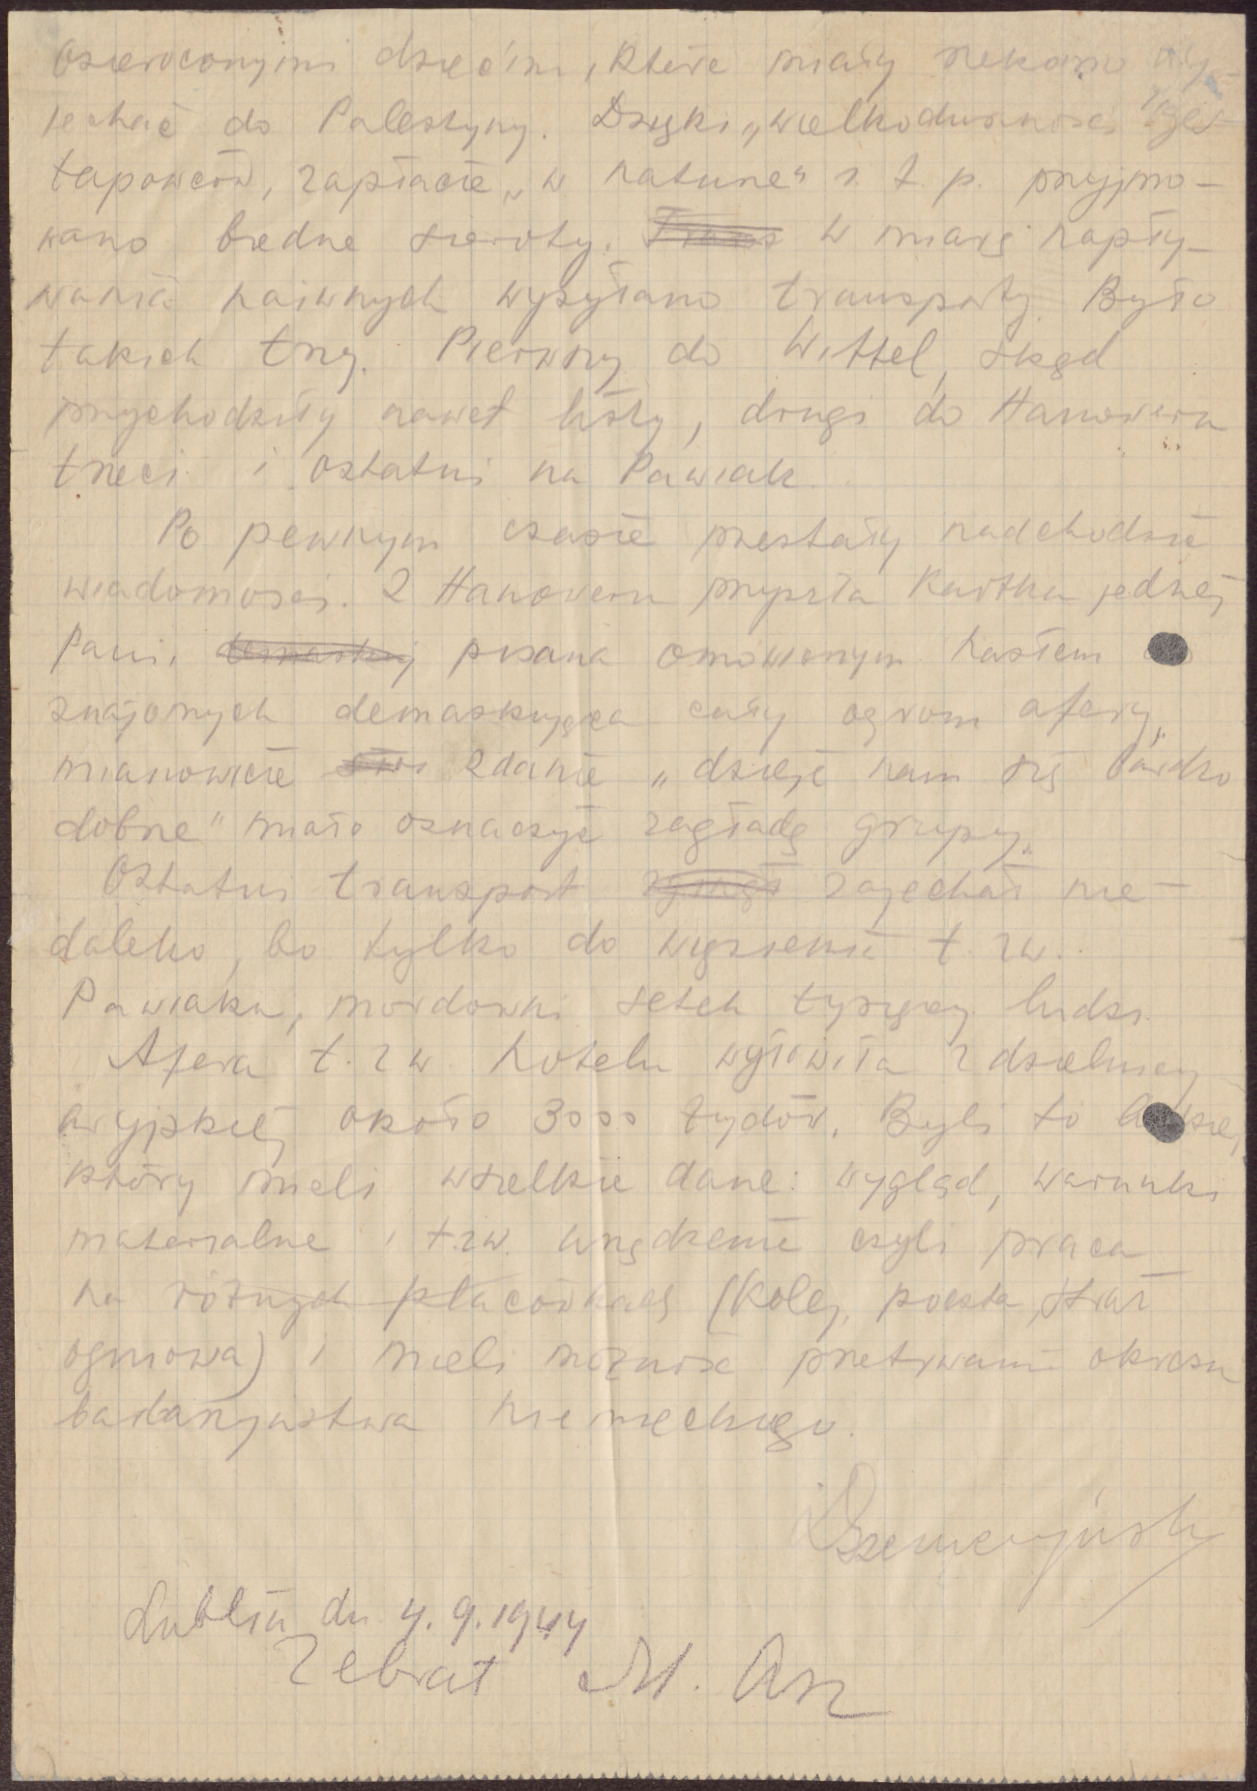 osieroconymi dziećmi, które miały rzekomo wy-
jechać do Palestyny. Dzięki „wielkoduszności" ges-
tapowców, zapłacie „w naturze" i t. p. przyjmo-
wano biedne sieroty. W miarę napły-
wania naiwnych wysyłano transporty. Było
takich trzy. Pierwszy do Wittel, skąd
przychodziły nawet listy, drugi do Hanoweru
trzeci i ostatni na Pawiak.
Po pewnym czasie przestały nadchodzić
wiadomości. Z Hanoweru przyszła kartka jednej
Pani, pisana omówionym hasłem
znajomych demaskująca cały ogrom afery,
mianowicie zdanie „dzieje nam się bardzo
dobrze" miało oznaczyć zagładę grupy.
Ostatni transport zajechał nie-
daleko, bo tylko do więzienia t. zw.
Pawiaka, mordowni setek tysięcy ludzi.
Afera t. zw. hotelu wyłowiła z dzielnicy
aryjskiej około 3000 żydów. Byli to
który mieli wszelkie dane: wygląd, warunki
materialne i t.zw. urządzenie czyli praca
na różnych placówkach (kolej, poczta, straż
ogniowa) i mieli możność przetrwania okresu
barbarzyństwa niemieckiego.
Lublin dn. 4. 9. 1944
Zebrał M. Asz